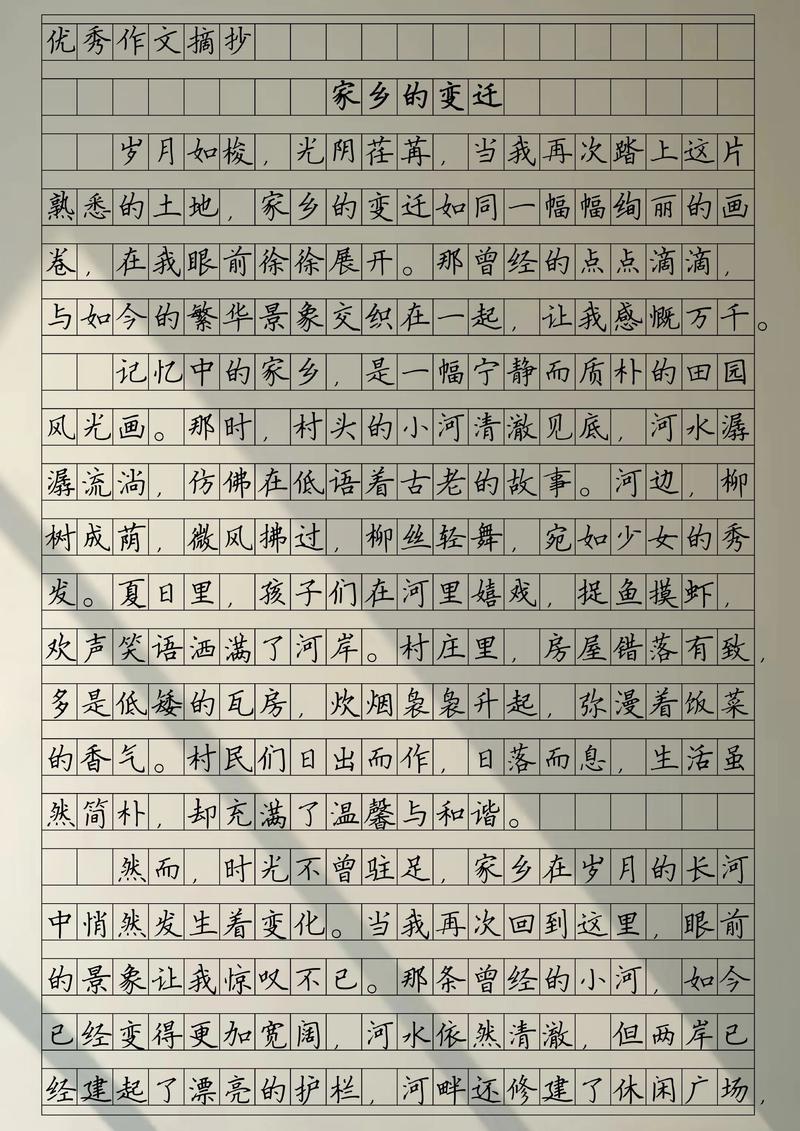 优秀作文摘抄
家乡的变迁
岁月如梭，光阴荏苒，当我再次踏上这片
熟悉的土地，家乡的变迁如同一幅幅绚丽的画
卷，在我眼前徐徐展开。那曾经的点点滴滴，
与如今的繁华景象交织在一起，让我感慨万千。
记忆中的家乡，是一幅宁静而质朴的田园
风光画。那时，村头的小河清澈见底，河水潺
潺流淌，仿佛在低语着古老的故事。河边，柳
树成荫，微风拂过，柳丝轻舞，宛如少女的秀
发。夏日里，孩子们在河里嬉戏，捉鱼摸虾，
欢声笑语洒满了河岸。村庄里，房屋错落有致，
多是低矮的瓦房，炊烟袅袅升起，弥漫着饭菜
的香气。村民们日出而作，日落而息，生活虽
然简朴，却充满了温馨与和谐。
然而，时光不曾驻足，家乡在岁月的长河
中悄然发生着变化。当我再次回到这里，眼前
的景象让我惊叹不已。那条曾经的小河，如今
已经变得更加宽阔，河水依然清澈，但两岸已
经建起了漂亮的护栏，河畔还修建了休闲广场，